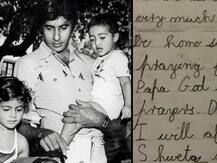 very much
be home s
praying
Papa God
prayers. O
I will a
Shweta